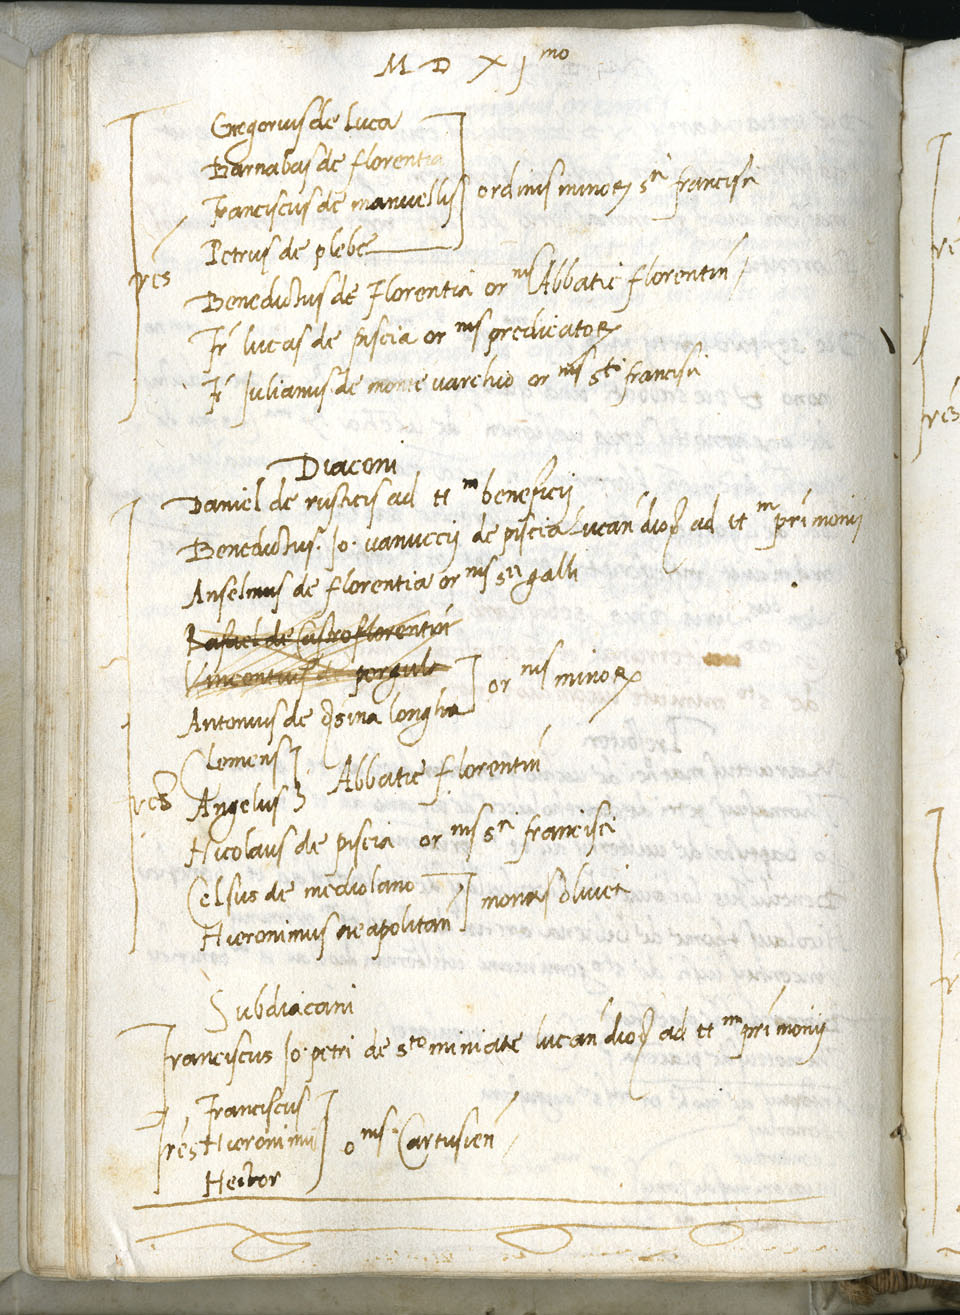 M D X j mo
Gregorius de luca
Barnabas de florentia
Franciscus de manuellis ordinis minor sti francisci
Petrus de plebe
res
Benedictus de Florentia or nis Abbatie florentin
Fr lucas de piscia or nis predicator
Fr Julianus de monte varchio or nis sti francisci
Diaconi
Daniel de rusticis ad tt m beneficij
Benedictus Jo. vanuccij de piscia lucan dioc ad tt m primonij
Anselmus de florentia or nis sti galli
Rafael de Castroflorentin
Vincentius de pergula
or nis minor
Antonius de asinalongha
Clemens
Abbatie florentin
res Angelus
Nicolaus de piscia or nis sti francisci
Celsus de mediolano
monas oliveti
Hieronimus neapolitan
Subdiaconi
Franciscus Jo. petri de sto miniate lucan dioc ad tt m primonij
Franciscus
res Hieronimus o nis Cartusien
Hector